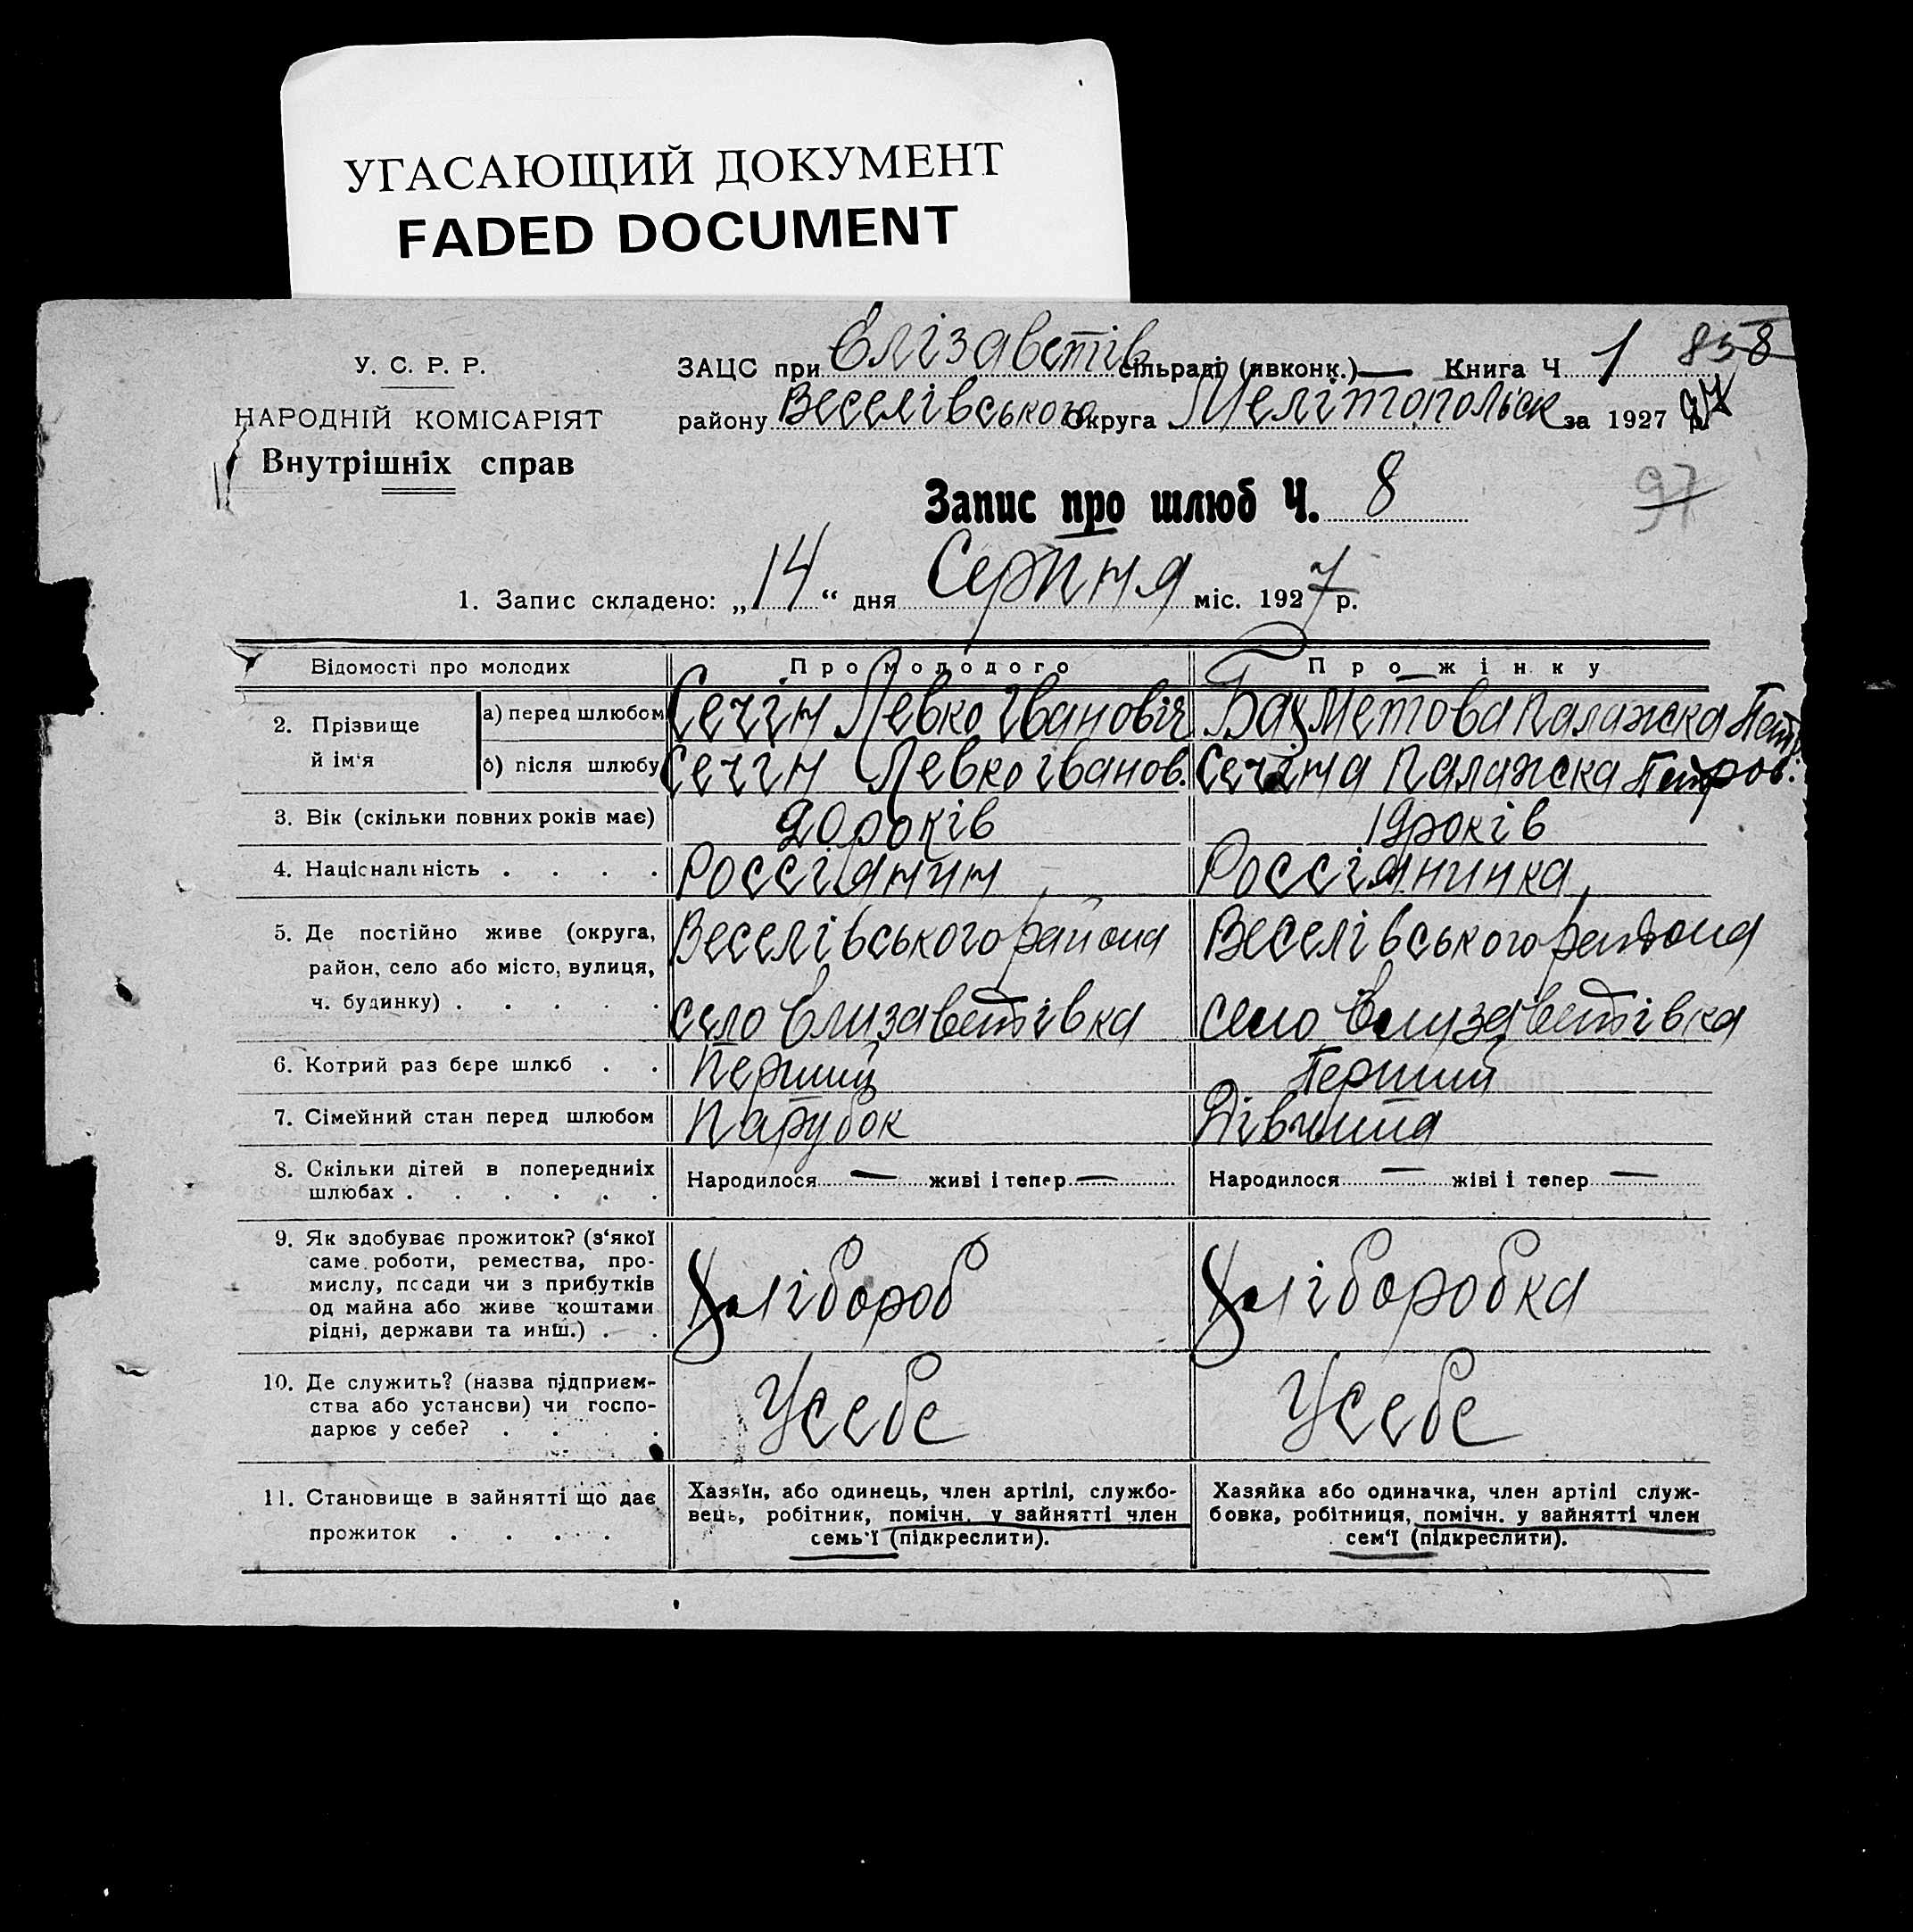 УГАСАЮЩИЙ ДОКУМЕНТ
FADED DOCUMENT
У. С. Р. Р.
НАРОДНІЙ КОМІСАРІЯТ
Внутрішніх справ
ЗАЦС при Єлізаветів сільраді (явконк.) — Книга Ч 1 858
району Веселівського Округа Мелітопольск за 1927 р.
97
Запис про шлюб Ч. 8
1. Запис складено: „14“ дня Серпня міс. 1927 р.
Відомості про молодих Про молодого Про жінку
2. Прізвище й ім'я
а) перед шлюбом Сечін Левко Іванович Бахметова Палажка Петр.
б) після шлюбу Сечін Левко Іванов. Сечіна Палажка Петров.
3. Вік (скільки повних років має) 20 років 19 років
4. Національність . . . . Россіянин Россіянинка
5. Де постійно живе (округа, район, село або місто, вулиця, ч. будинку) . . . . .
Веселівського району Веселівського району
село Єлизаветівка село Єлизаветівка
6. Котрий раз бере шлюб . . Перший Перший
7. Сімейний стан перед шлюбом Парубок Дівчина
8. Скільки дітей в попередниіх шлюбах . . . . . .
Народилося — живі і тепер — Народилося — жіві і тепер —
9. Як здобуває прожиток? (з'якої
саме роботи, ремества, про-
мислу, посади чи з прибутків
од майна або живе коштами
рідні, держави та инш.) . .
Хлібороб Хліборобка
10. Де служить? (назва підприєм-
ства або установи) чи госпо-
дарює у себе? . . . .
Усебе Усебе
11. Становище в зайнятті що дає
прожиток . . . .
Хазяїн, або одинець, член артілі, службо-
вець, робітник, помічн. у зайнятті член
семь'ї (підкреслити).
Хазяйка або одиначка, член артілі служ-
бовка, робітниця, помічн. у зайнятті член
сем'ї (підкреслити).